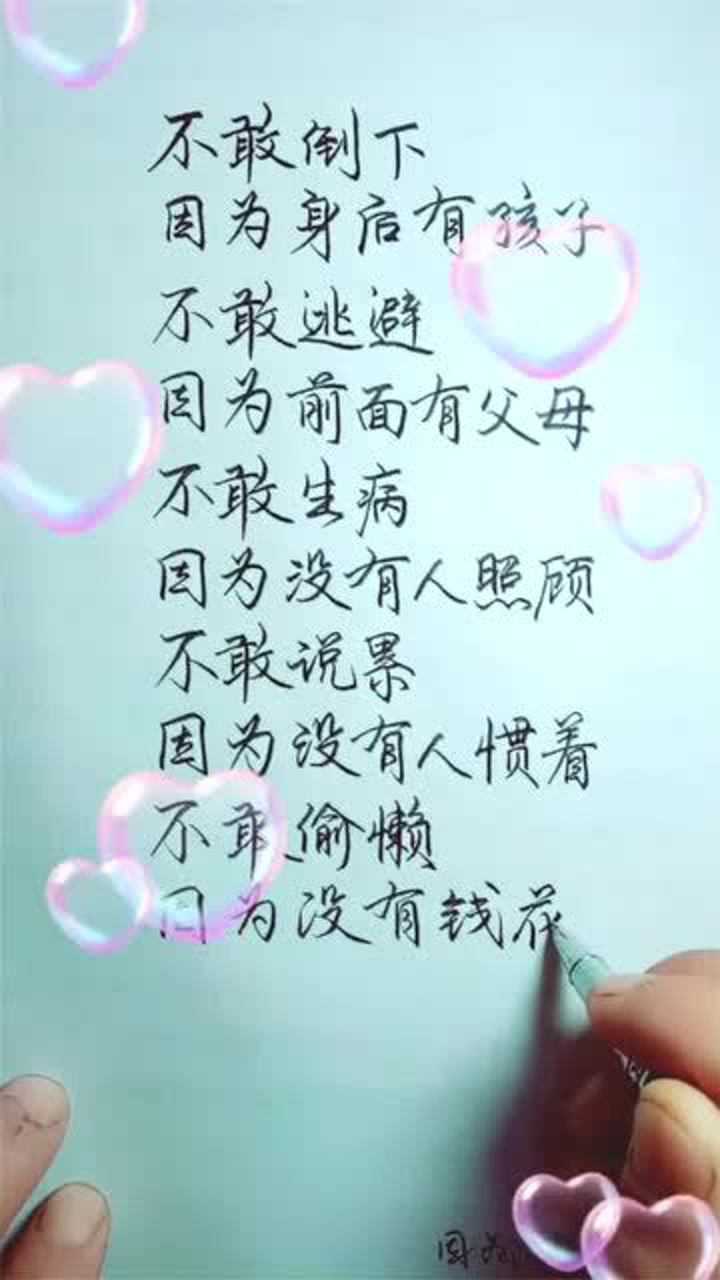 不敢倒下
因为身后有孩子
不敢逃避
因为前面有父母
不敢生病
因为没有人照顾
不敢说累
因为没有人惯着
不敢偷懒
因为没有钱花
因为